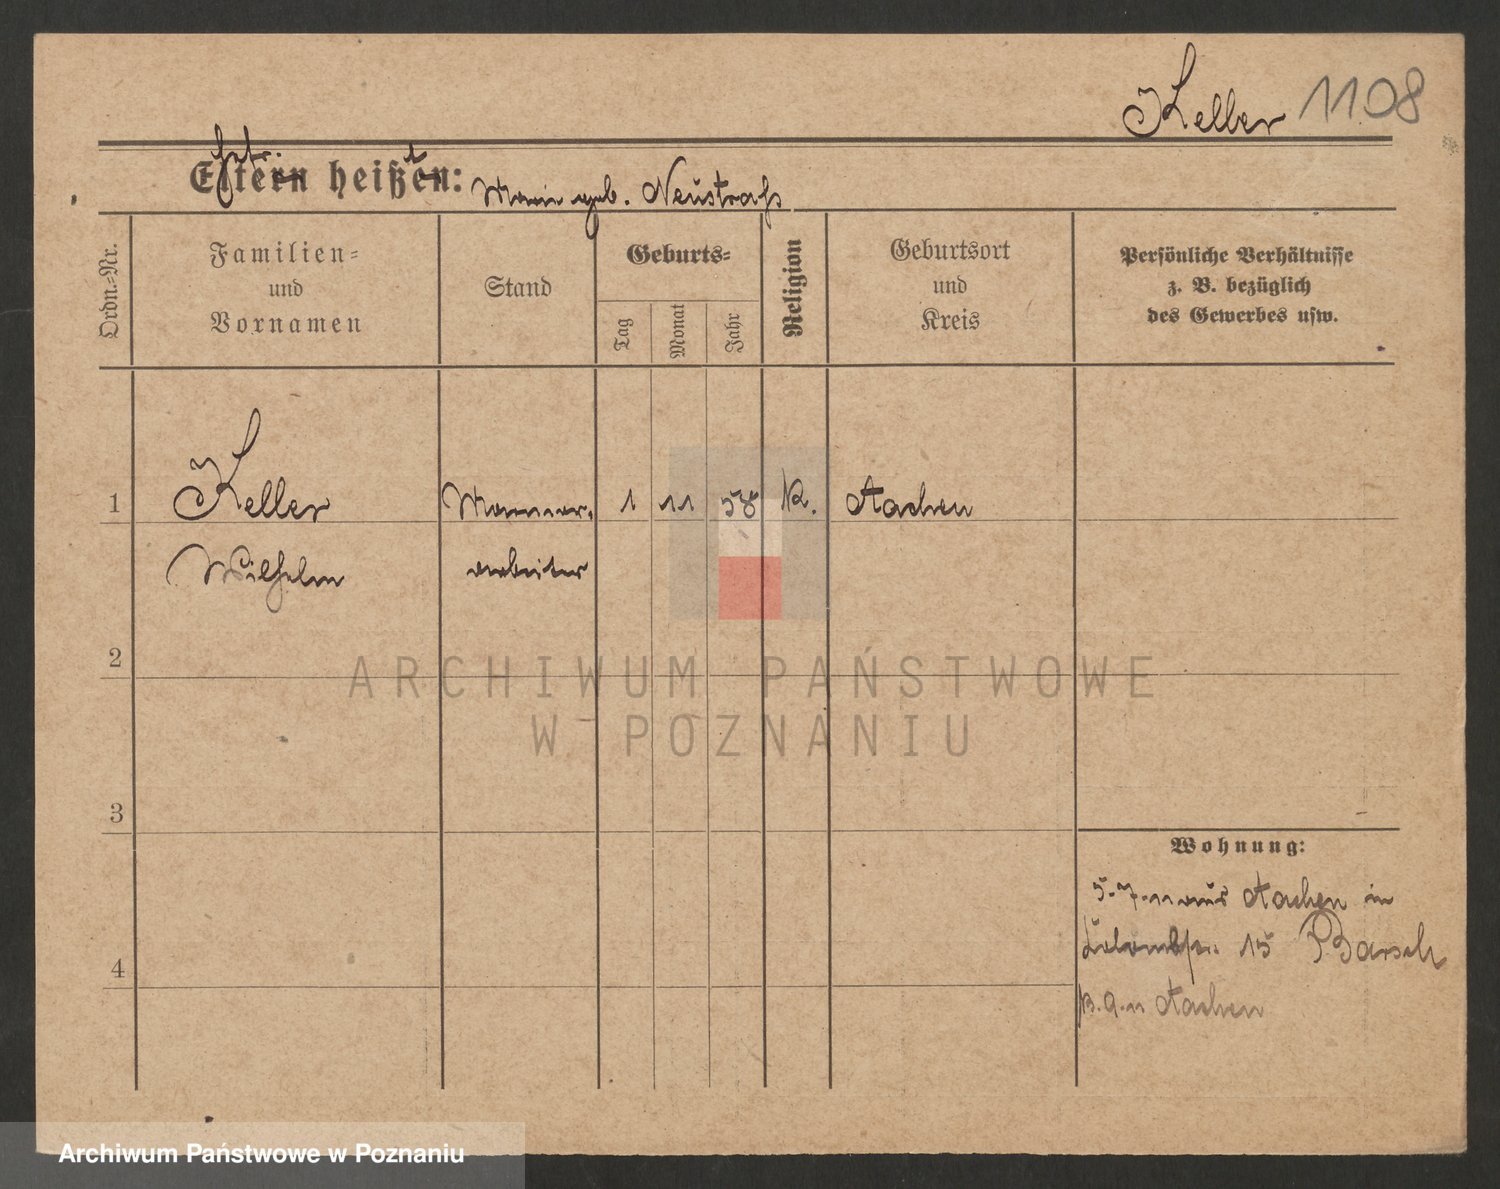 Keller 1108
Eltern heißen: geb. Neustraß
Ordn.=Nr.
Familien=
und
Vornamen
Stand
Geburts=
Tag
Monat
Jahr
Religion
Geburtsort
und
Kreis
Persönliche Verhältnisse
z. B. bezüglich
des Gewerbes usw.
1 Keller 1 11 58 K. Aachen
Wilhelm arbeiter
2
ARCHIWUM PAŃSTWOWE
W POZNANIU
3
Wohnung:
5.7.11 aus Aachen in
15 Barsch
4
Aachen
Archiwum Państwowe w Poznaniu